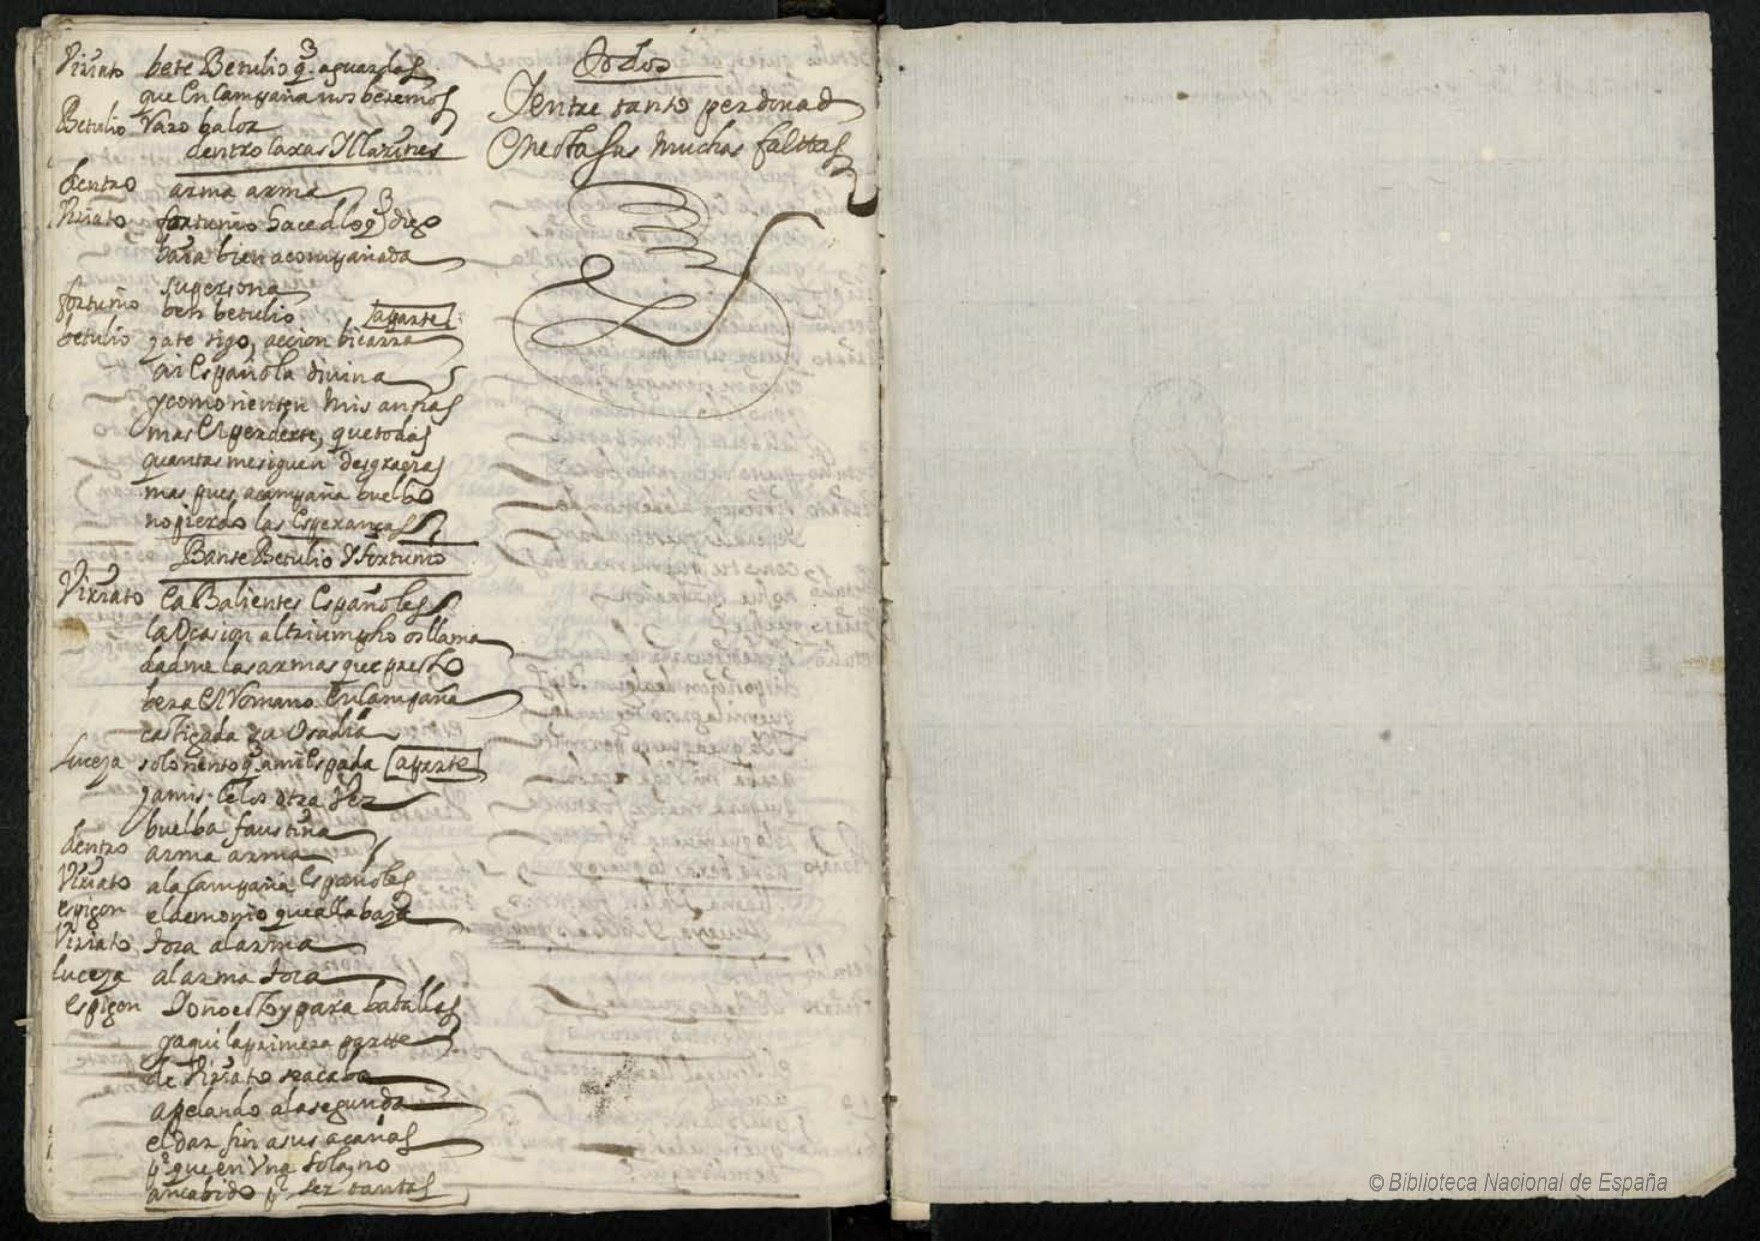 Viriato bete Betulio q. aguardas
que en Campaña nos beremos
Betulio Raro balor
dentro caxas Y Clarines
dentro arma arma
Viriato fortunio haced lo q digo
baia bien acompañada
su persona
fortunio ben betulio aparte
betulio ya te sigo, accion bicarra
ai Española divina
y como sienten mis ansias
mas el perderte, que todas
quantas me siguen desgracias
mas pues a campaña buelbo
no pierdo las esperanças
Banse Betulio Y fortunio
Viriato ea Balientes Españoles
la Ocasion al triumpho os llama
dadme las armas que presto
bera el Romano en Campaña
castigada su Osadia
Luceja solo siento q. a mi Espada aparte
y a mis celos otra vez
buelba faustina
dentro arma arma
Viriato a la Campaña Españoles
espigon el demonio que alla baje
Viriato toca al arma
luceja al arma toca
espigon Io no estoy para batallas
y aqui la primera partte
de Viriato se acaba
apelando a la segunda
el dar fin a sus açañas
p.ª que en Vna sola, no
an cabido pr. ser tantas
todos
I entre tanto perdonad
nuestras muchas falttas
© Biblioteca Nacional de España